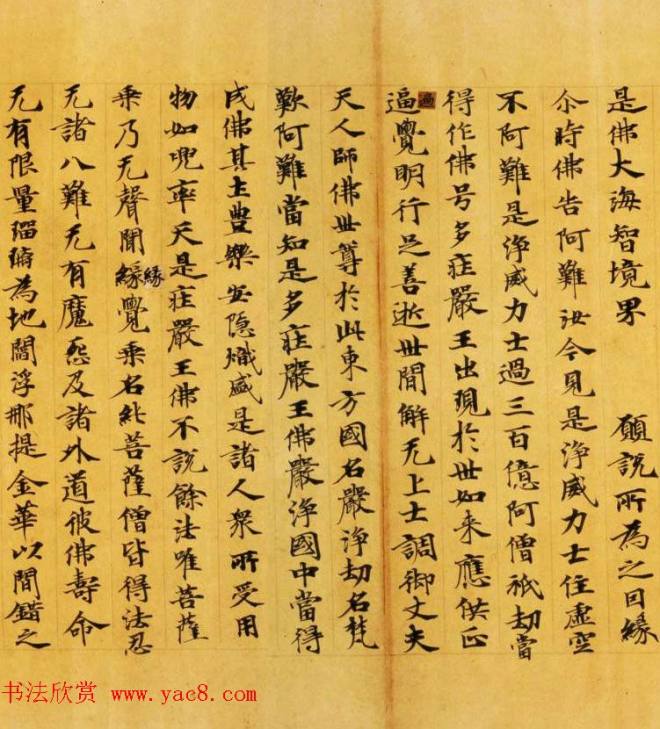 是佛大海智境界 願說所為之因緣
尒時佛告阿難汝今見是淨威力士住虛空
不阿難是淨威力士過三百億阿僧祇劫當
得作佛号多莊嚴王出現於世如来應供正
遍覺明行足善逝世間解无上士調御丈夫
天人師佛世尊於此東方國名嚴淨劫名梵
歎阿難當知是多莊嚴王佛嚴淨國中當得
成佛其土豊樂安隱熾盛是諸人衆所受用
物如兜率天是莊嚴王佛不說餘法唯菩薩
乘乃无聲聞緣覺乘名純菩薩僧皆得法忍
緣
无諸八難无有魔怨及諸外道彼佛壽命
无有限量瑠璃為地閻浮那提金華以間錯之
书法欣赏 www.yac8.com